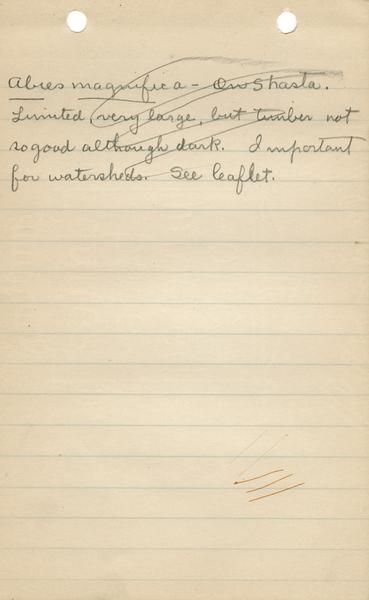 Abies magnifica - On Shasta.
Limited very large, but timber not
so good although dark. Important
for watersheds. See leaflet.